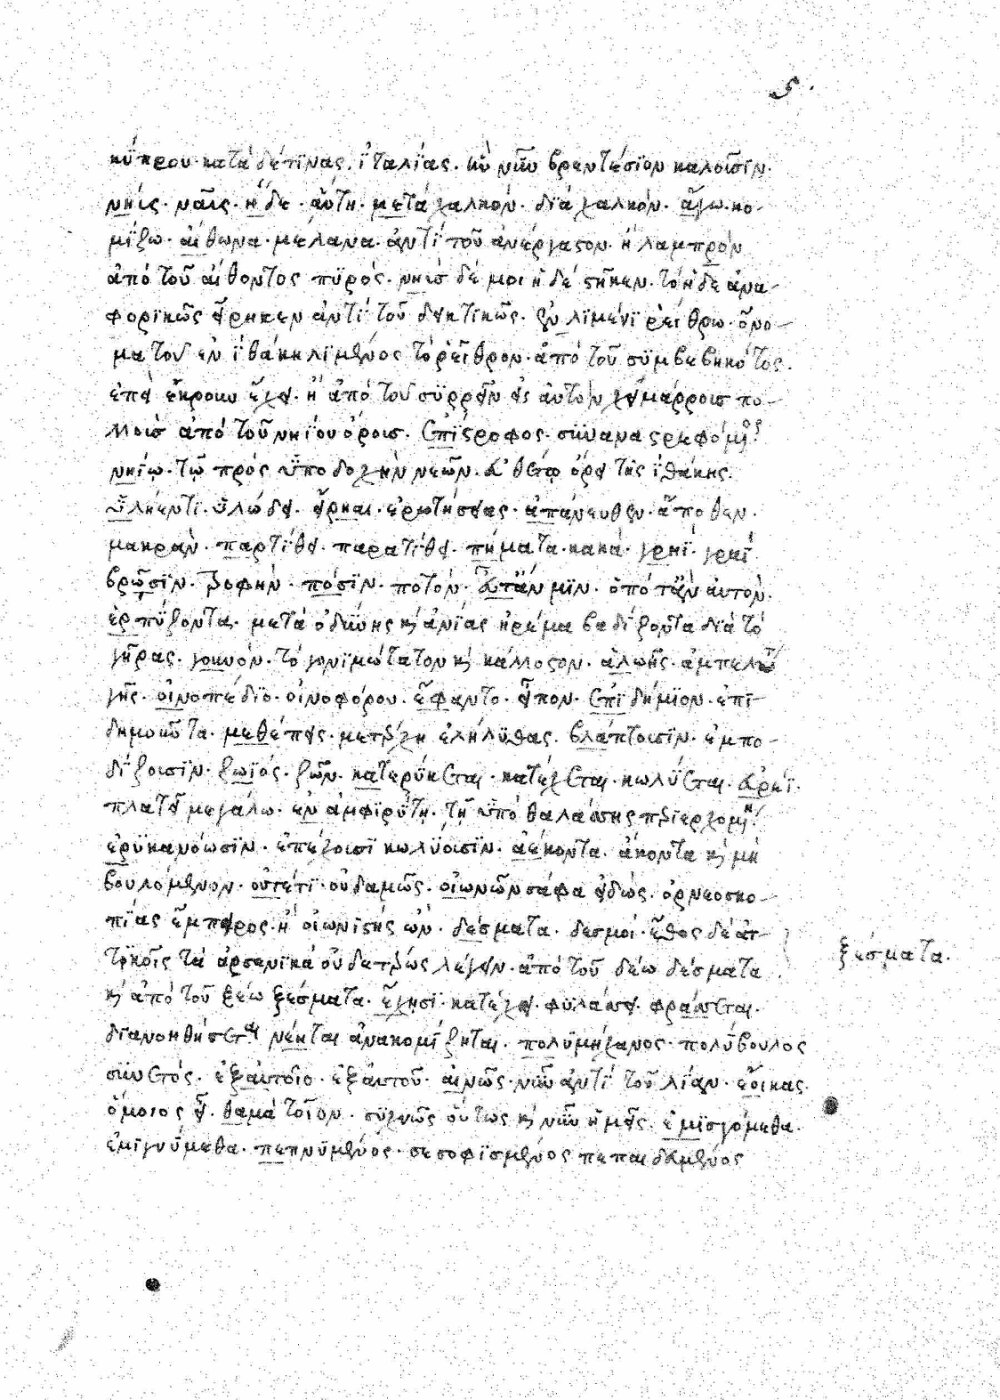 5.
κύπρου· κατὰ δέ τινας, ἰταλίας· ἣν νῦν βρεντέσιον καλοῦσιν.
νηῦς· ναῦς· ἥδε· αὕτη· μετὰ χαλκόν· διὰ χαλκόν· ἄγω· κο-
μίζω· αἴθωνα· μέλανα· ἀντὶ τοῦ ἀνέργαστον· ἢ λαμπρὸν
ἀπὸ τοῦ αἴθοντος πυρός. νηῦσ δέ μοι ἥδε ἕστηκεν· τὸ ἥδε ἀνα-
φορικῶς εἴρηκεν ἀντὶ τοῦ δεικτικῶς· ἐν λιμένι ῥείθρω· ὄνο-
μα τοῦ ἐν ἰθάκη λιμένος τὸ ῥεῖθρον· ἀπὸ τοῦ συμβεβηκότος.
ἢ ἀπὸ τοῦ συρρεῖν εἰς αὐτὸν χειμάρρους πο-
ἀπὸ τοῦ νηΐου ὄρους. ἐπίστροφος· συναναστρεφόμενος
νηίῳ· τῷ πρὸς ὑποδοχὴν νεῶν· ὄρει τῆς ἰθάκης.
ὑλήεντι· ὑλώδει· εἴρηαι· ἐρωτήσειας· ἀπάνευθεν· ἄποθεν
μακρὰν· παρτιθεῖ· παρατιθεῖ· πήματα· κακὰ· γρηῒ· γραΐ
βρῶσιν· τροφὴν· πόσιν· ποτόν· εὖτ' ἄν μιν· ὁπότ' ἂν αὐτὸν.
ἑρπύζοντα· μετὰ ὀδύνης καὶ ἀνίας ἠρέμα βαδίζοντα διὰ τὸ
γῆρας. γουνὸν· τὸ γονιμώτατον καὶ κάλλιστον· ἀλωῆς· ἀμπελώ
γῆς· οἰνοπέδιο· οἰνοφόρου. ἔφαντο· εἶπον· ἐπιδήμιον· ἐπι-
δημοῦντα· μεθέπεις· ἐλήλυθας. βλάπτουσιν· ἐμπο-
δίζουσιν· ζωιός· ζῶν· κατερύκεται· κατέχεται· κωλύεται· εὐρέϊ·
πλατεῖ μεγάλω· ἐν ἀμφιρύτη· τῇ ὑπὸ θαλάσσης περιερχομένη·
ἐρυκανόωσιν· ἐπέχουσι κωλύουσιν· ἀέκοντα· ἄκοντα καὶ μὴ
βουλόμενον· οὔτέ τι· οὐδαμῶς· οἰωνῶν σάφα εἰδὼς· ὀρνεοσκο-
πίας ἔμπειρος· ἢ οἰωνιστὴς ὢν· δέσματα· δεσμοί· ἔθος δὲ ἀτ-
τικοῖς τὰ ἀρσενικὰ οὐδετέρως λέγειν· ἀπὸ τοῦ δέω δέσματα
καὶ ἀπὸ τοῦ ξέω ξέσματα· ἔχησι· κατέχει· φυλάσσει· φράσσεται·
διανοηθήσεται νέηται ἀνακομίζηται· πολυμήχανος· πολύβουλος
συνετός. ἐξ αὐτοῖο· ἐξ αὐτοῦ· αἰνῶς· νῦν ἀντὶ τοῦ λίαν· ἔοικας·
ὅμοιος εἶ· θαμὰ τοῖον· συχνῶς οὕτως καὶ νῦν ἡμεῖς· ἐμισγόμεθα·
ἐμιγνύμεθα· πεπνυμένος· σεσοφισμένος πεπαιδευμένος
ξέσματα.